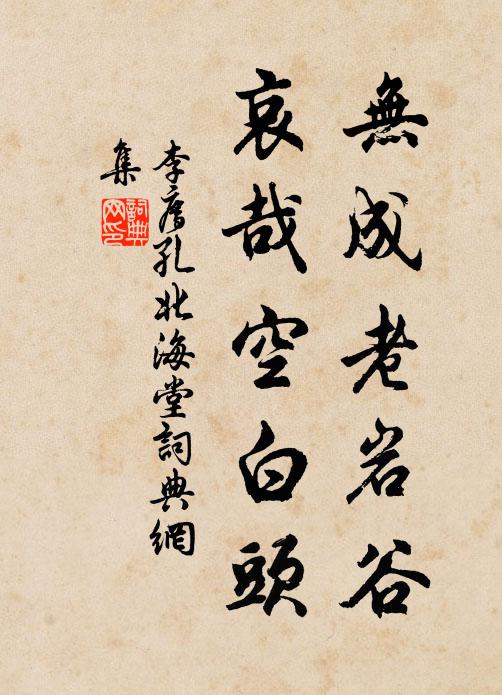 無成老岩谷
哀哉空白頭
李廌孔北海堂詞典網
集
詞典網印